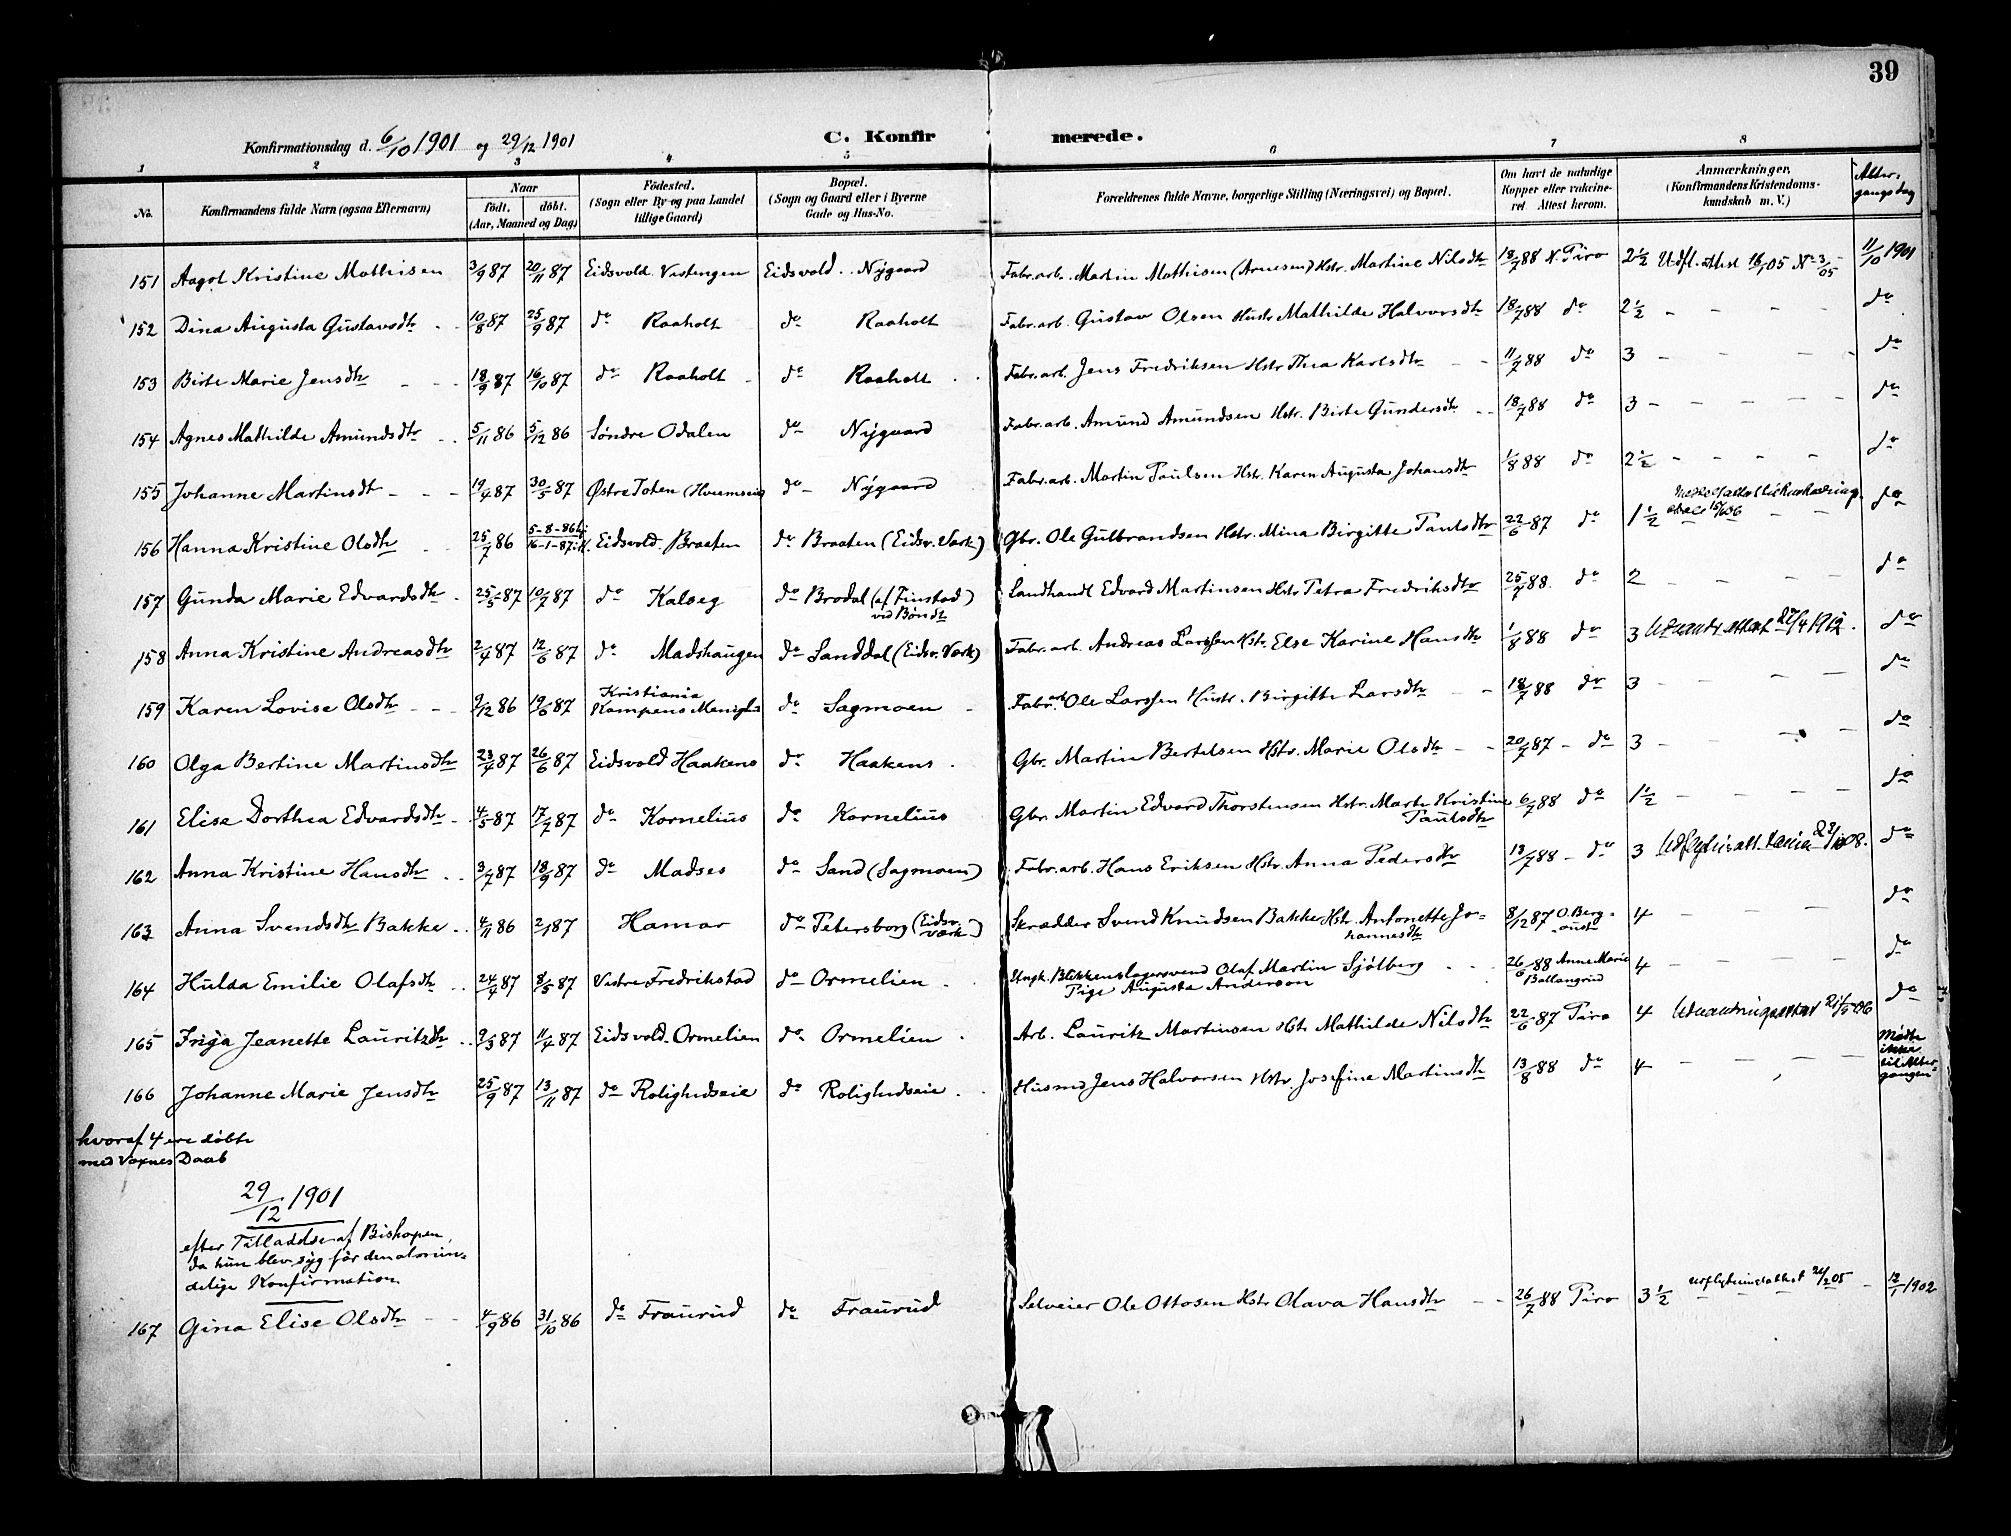 39
Konfirmationsdag d. 6/10 1901 og 29/12 1901 C. Konfirmerede.
1 2 3 4 5 6 7 8
No. Konfirmandens fulde Navn (ogsaa Efternavn) Naar født. døbt. (Aar, Maaned og Dag) Fødested. (Sogn eller By og paa Landet tillige Gaard) Bopæl. (Sogn og Gaard eller i Byerne Gade og Hus-No. Forældrenes fulde Navne, borgerlige Stilling (Næringsvei) og Bopæl. Om havt de naturlige Kopper eller vakcineret. Attest herom. Anmærkninger. (Konfirmandens Kristendomskundskab m. V.) Altergangsdag
151 Aagot Kristine Mathisen 3/9 87 20/11 87 Eidsvold. Vestengen Eidsvold. Nygaard Fabr. arb. Martin Mathisen (Arnesen) Hstr. Martine Nilsdtr 18/7 88 N. Piro 2 1/2 Udfl. attest 16/1 05 No 3/05 11/10 1901
152 Dina Augusta Gustavsdtr 10/8 87 25/9 87 do Raaholt do Raaholt Fabr. arb. Gustav Olsen Hustr Mathilde Halvorsdtr 18/7 88 do 2 1/2 do
153 Birte Marie Jensdtr 18/9 87 16/10 87 do Raaholt do Raaholt Fabr. arb. Jens Fredriksen Hstr Thea Karlsdtr 11/7 88 do 3 do
154 Agnes Mathilde Amundsdtr 5/11 86 5/12 86 Søndre Odalen do Nygaard Fabr. arb. Amund Amundsen Hstr. Birte Gundersdtr 18/7 88 do 3 do
155 Johanne Martinsdt 19/4 87 30/5 87 Østre Toten (Hveemseie do Nygaard Fabr. arb. Martin Paulsen Hstr. Karen Augusta Johansdtr 1/8 88 do 2 1/2 do
156 Hanna Kristine Olsdtr 25/7 86 5-8-86 hj 16-1-87 i K. Eidsvold. Braaten do Braaten (Eidsv. Værk) Gbr. Ole Gulbrandsen Hstr. Mina Birgitte Paulsdtr 22/6 87 do 1 1/2 do
157 Gunda Marie Edvardsdtr 25/5 87 10/7 87 do Kalseg do Brodal (af Finstad) vid Bøndt Landhandl Edvard Martinsen Hstr Petra Fredriksdtr 25/7 88. do 2 do
158 Anna Kristine Andreasdtr 2/4 87 12/6 87 do Madshaugen do Sanddal (Eidsv. Værk) Fabr. arb. Andreas Larssen Hstr. Else Karine Hansdtr 1/8 88 do 3 do
159 Karen Lovise Olsdtr 9/12 86 19/6 87 Kristiania Kampens Menighed do Sagmoen Fabr. arb Ole Larssen Hustr. Birgitte Larsdtr 18/7 88 do 3 do
160 Olga Bertine Martinsdtr 23/4 87 26/6 87 Eidsvold Haakens do Haakens Gbr. Martin Bertelsen Hstr. Marie Olsdtr 20/7 87 do 3 do
161 Elise Dorthea Edvardsdtr 4/5 87 17/7 87 do Kornelius do Kornelius Gbr. Martin Edvard Thorstensen Hstr. Marte Kristine Paulsdtr 6/7 88 do 1 1/2 do
162 Anna Kristine Hansdtr 3/7 87 18/9 87 do Madses do Sand (Sagmoen) Fabr. arb. Hans Eriksen Hstr. Anna Pedersdtr 13/7 88 do 3 do
163 Anna Svendsdtr Bakke 4/11 86 2/1 87 Hamar do Petersborg (Eidsv. Værk) Skrædder Svend Knudsen Bakke Hstr. Antonette Johannesdtr 8/12 87 O. Bergaust 4 do
164 Hulda Emilie Olafsdtr 24/4 87 8/5 87 Vestre Fredrikstad do Ormelien Ungk. Blikkenslagersvend Olaf Martin Sjølberg Pige Augusta Anderson 26/6 88 Anne Marie Ballangrud 4 do
165 Frija Jeanette Lauritzdtr 9/3 87 11/4 87 Eidsvold. Ormelien do Ormelien Arb. Lauritz Martinsen Hstr Mathilde Nilsdtr 22/6 87 Piro 4 do
166 Johanne Marie Jensdtr 25/9 87 13/11 87 do Rolighedseie do Rolighedseie Husmd Jens Halvorsen Hstr. Josefine Martinsdtr 13/8 88 do 4 Mødte ikke til Altergangen
hvoraf 4 ere døbte
med Voxnes Daab
29/12 1901
efter Tilladelse af Biskopen,
da hun blev syg før den almindelige Konfirmation
167 Gina Elise Olsdtr 4/9 86 31/10 86 do Fraurud do Fraurud Selveier Ole Ottosen Hstr Olava Hansdtr 26/7 88 Piro 3 1/2 12/1 1902